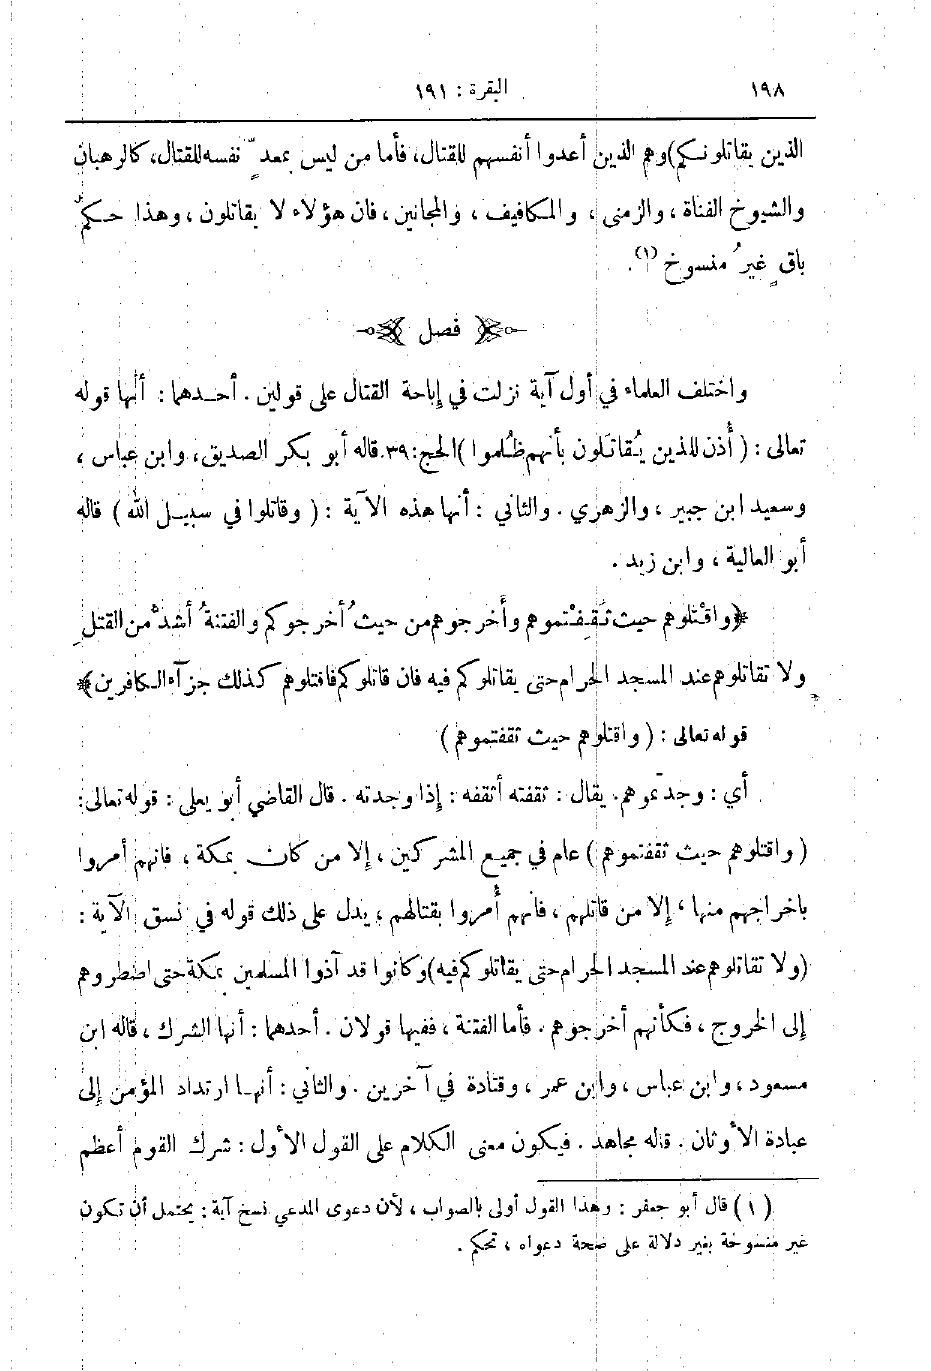 ١٩٨ البقرة : ١٩١
الذين يقاتلونكم) وهم الذين أعدوا أنفسهم للقتال، فأما من ليس بمعدٍّ نفسه للقتال، كالرهبان
والشيوخ الفناة ، والزمنى ، والمكافيف ، والمجانين ، فان هؤلاء لا يقاتلون ، وهذا حكمٌ
باقٍ غيرُ منسوخ (١).
فصل
واختلف العلماء في أول آية نزلت في إباحة القتال على قولين . أحدهما : أنها قوله
تعالى : ( أُذن للذين يُقاتَلون بأنهم ظُلموا ) الحج:٣٩. قاله أبو بكر الصديق، وابن عباس ،
وسعيد ابن جبير ، والزهري . والثاني : أنها هذه الآية : ( وقاتلوا في سبيل الله ) قاله
أبو العالية ، وابن زيد .
﴿واقْتلوهم حيث ثَقِفْتموهم وأَخرجوهم من حيثُ أخرجوكم والفتنةُ أشدُّ من القتلِ
ولا تقاتلوهم عند المسجد الحرام حتى يقاتلوكم فيه فان قاتلوكم فاقتلوهم كذلك جزآء الكافرين﴾
قوله تعالى : ( واقتلوهم حيث ثقفتموهم )
أي : وجدتموهم. يقال : ثقفته أثقفه : إذا وجدته . قال القاضي أبو يعلى : قوله تعالى:
( واقتلوهم حيث ثقفتموهم ) عام في جميع المشركين ، إلا من كان بمكة ، فانهم أمروا
باخراجهم منها ، إلا من قاتلهم ، فانهم أُمروا بقتالهم ، يدل على ذلك قوله في نسق الآية :
(ولا تقاتلوهم عند المسجد الحرام حتى يقاتلوكم فيه) وكانوا قد آذوا المسلمين بمكة حتى اضطروهم
إلى الخروج ، فكأنهم أخرجوهم . فأما الفتنة ، ففيها قولان . أحدهما : أنها الشرك ، قاله ابن
مسعود ، وابن عباس ، وابن عمر ، وقتادة في آخرين . والثاني : أنها ارتداد المؤمن إلى
عبادة الأوثان . قاله مجاهد . فيكون معنى الكلام على القول الأول : شرك القوم أعظم
( ١ ) قال أبو جعفر : وهذا القول أولى بالصواب ، لأن دعوى المدعي نسخ آية : يحتمل أن تكون
غير منسوخة بغير دلالة على صحة دعواه ، تحكم .